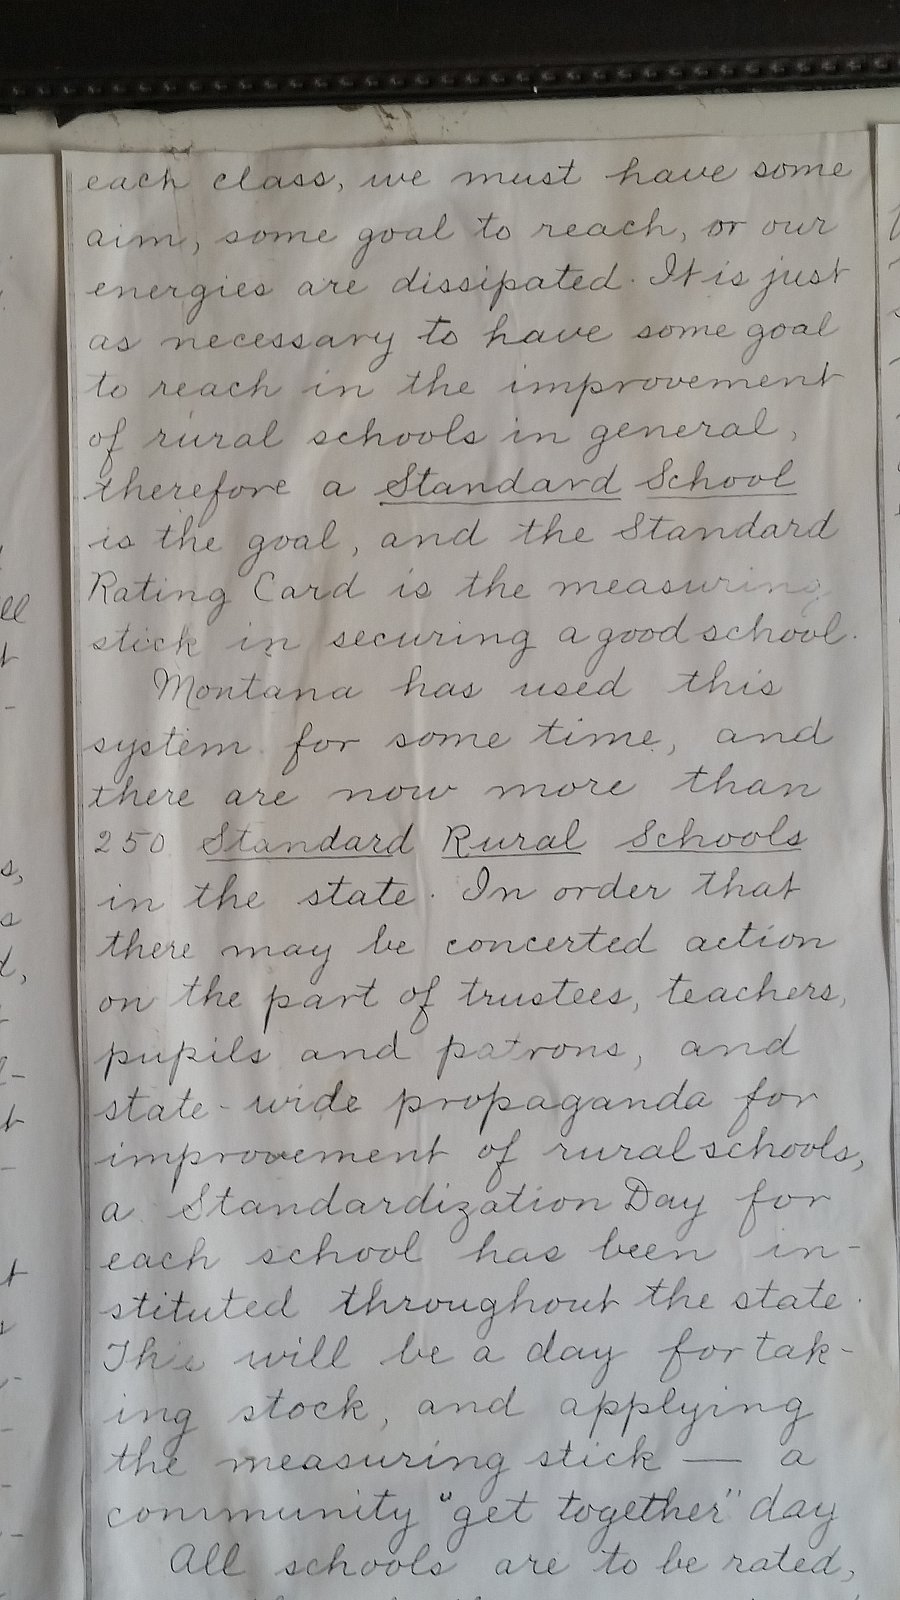 each class, we must have some
aim, some goal to reach, or our
energies are dissipated. It is just
as necessary to have some goal
to reach in the improvement
of rural schools in general,
therefore a Standard School
is the goal, and the Standard
Rating Card is the measuring
stick in securing a good school.
Montana has used this
system for some time, and
there are now more than
250 Standard Rural Schools
in the state. In order that
there may be concerted action
on the part of trustees, teachers,
pupils and patrons, and
state-wide propaganda for
improvement of rural schools,
a Standardization Day for
each school has been in-
stituted throughout the state.
This will be a day for tak-
ing stock, and applying
the measuring stick — a
community "get together" day
All schools are to be rated,